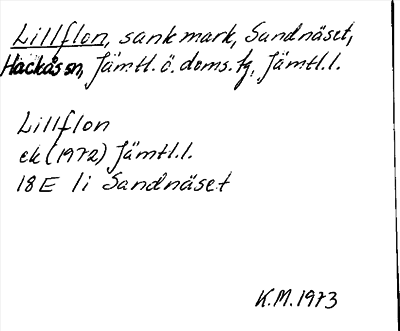 Lillflon, sank mark, Sandnäset,
Hackås sn, Jämtl.ö.doms.tg, Jämtl.l.
Lillflon
ek (1972) Jämtl.l.
18E 1i Sandnäset
K.M.1973